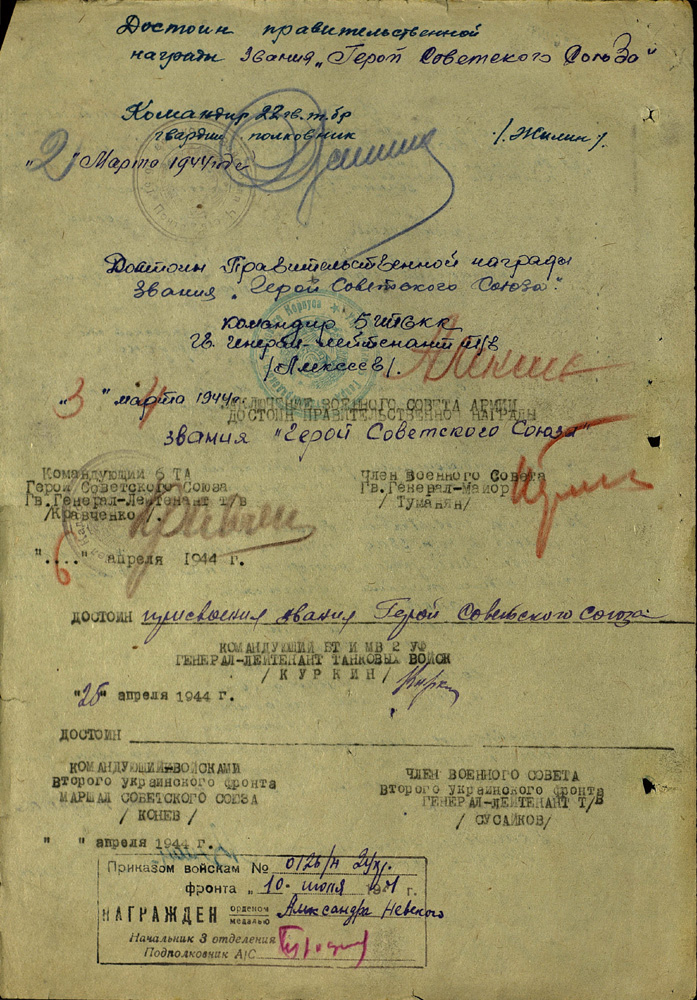 Достоин правительственной
награды звания „Герой Советского Союза"
Командир 22 гв. т. бр
гвардии полковник /. Жилин /.
"2" Марта 1944 года
Достоин Правительственной награды
звания „Герой Советского Союза".
командир 5 гв
Гв. генерал-лейтенант т/в
/Алексеев/.
"3" марта 1944г.
ЗАКЛЮЧЕНИЕ ВОЕННОГО СОВЕТА АРМИИ
ДОСТОИН ПРАВИТЕЛЬСТВЕННОЙ НАГРАДЫ
звания "Герой Советского Союза"
Командующий 6 ТА
Герой Советского Союза
Гв.Генерал-Лейтенант т/в
/Кравченко/.
Член Военного Совета
Гв.Генерал-Майор
/ Туманян/
"6" апреля 1944 г.
ДОСТОИН присвоения звания Герой Советского Союза
КОМАНДУЮЩИЙ БТ И МВ 2 УФ
ГЕНЕРАЛ-ЛЕЙТЕНАНТ ТАНКОВЫХ ВОЙСК
/ КУРКИН /
"25" апреля 1944 г.
ДОСТОИН
КОМАНДУЮЩИЙ ВОЙСКАМИ
Второго украинского фронта
МАРШАЛ СОВЕТСКОГО СОЮЗА
/ КОНЕВ /
ЧЛЕН ВОЕННОГО СОВЕТА
Второго украинского фронта
ГЕНЕРАЛ-ЛЕЙТЕНАНТ Т/В
/ СУСАЙКОВ/
" " апреля 1944 г.
Приказом войскам № 026/н
фронта „ 10. июня г.
НАГРАЖДЕН орденом медалью Александра Невского
Начальник 3 отделения
Подполковник А/С